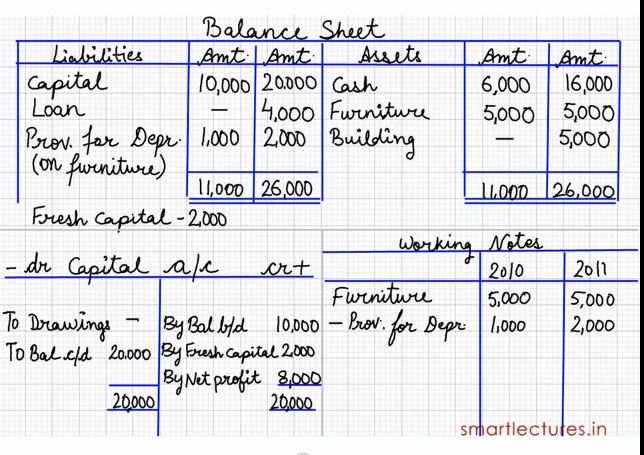 Balance Sheet
Liabilities Amt. Amt. Assets Amt. Amt.
Capital 10,000 20.000 Cash 6,000 16,000
Loan — 4,000 Furniture 5,000 5,000
Prov. for Depr. 1,000 2,000 Building — 5,000
(on furniture)
11,000 26,000 11,000 26,000
Fresh Capital - 2,000
- dr Capital a/c cr +
To Drawings — By Bal b/d 10,000
To Bal c/d 20.000 By Fresh Capital 2,000
By Net profit 8,000
20,000 20,000
Working Notes
2010 2011
Furniture 5,000 5,000
- Prov. for Depr 1,000 2,000
smartlectures.in